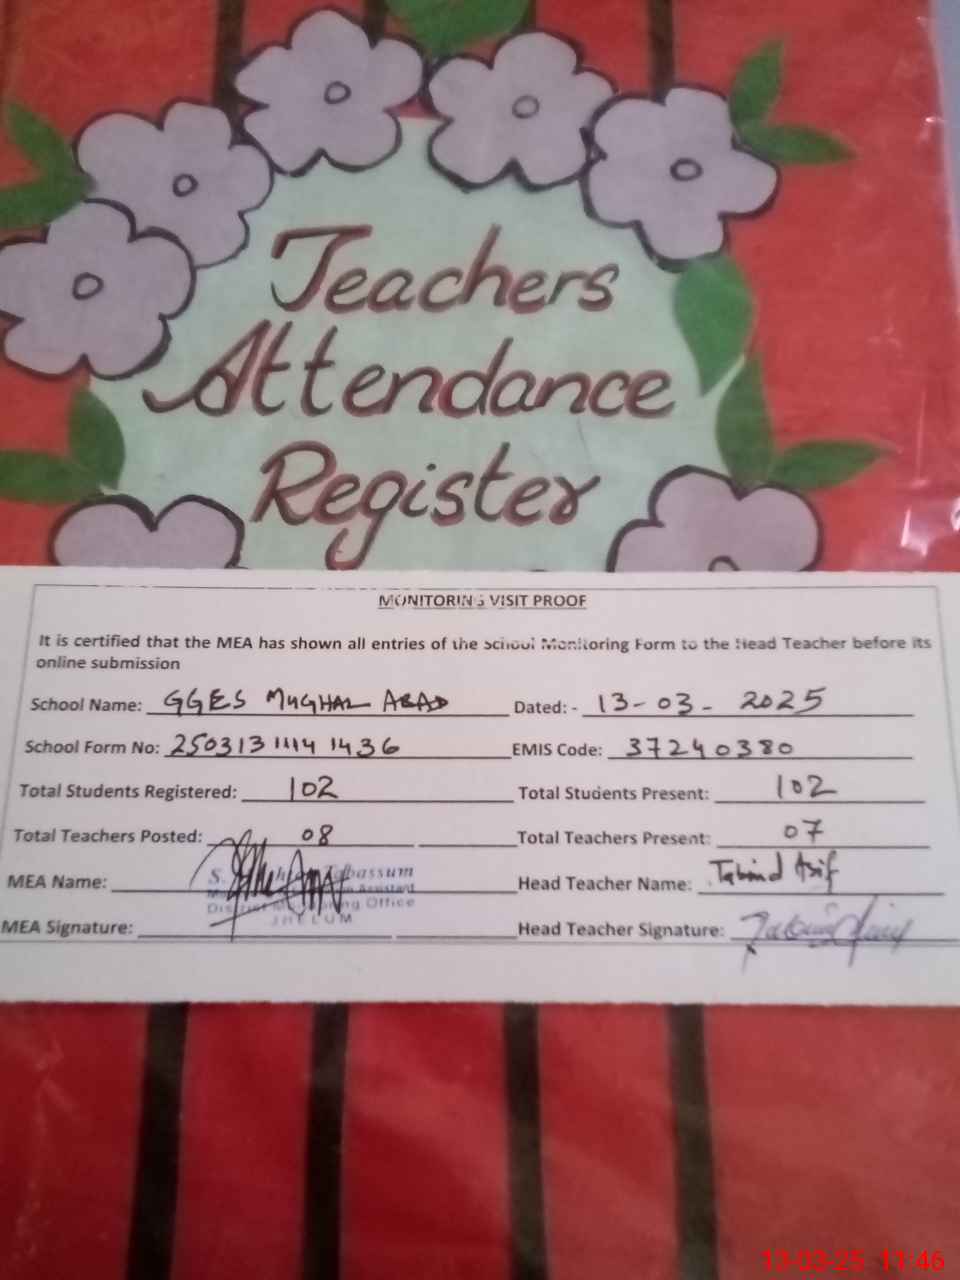 Teachers
Attendance
Register
MONITORING VISIT PROOF
It is certified that the MEA has shown all entries of the School Monitoring Form to the Head Teacher before its
online submission
School Name: GGES MUGHAL ABAD Dated: - 13-03-2025
School Form No: 250313 1114 1436 EMIS Code: 37240380
Total Students Registered: 102 Total Students Present: 102
Total Teachers Posted: 08 Total Teachers Present: 07
MEA Name: S. Tabassum Head Teacher Name: Asif
Assistant
District Monitoring Office
JHELUM
MEA Signature: Head Teacher Signature:
13-03-25 11:46